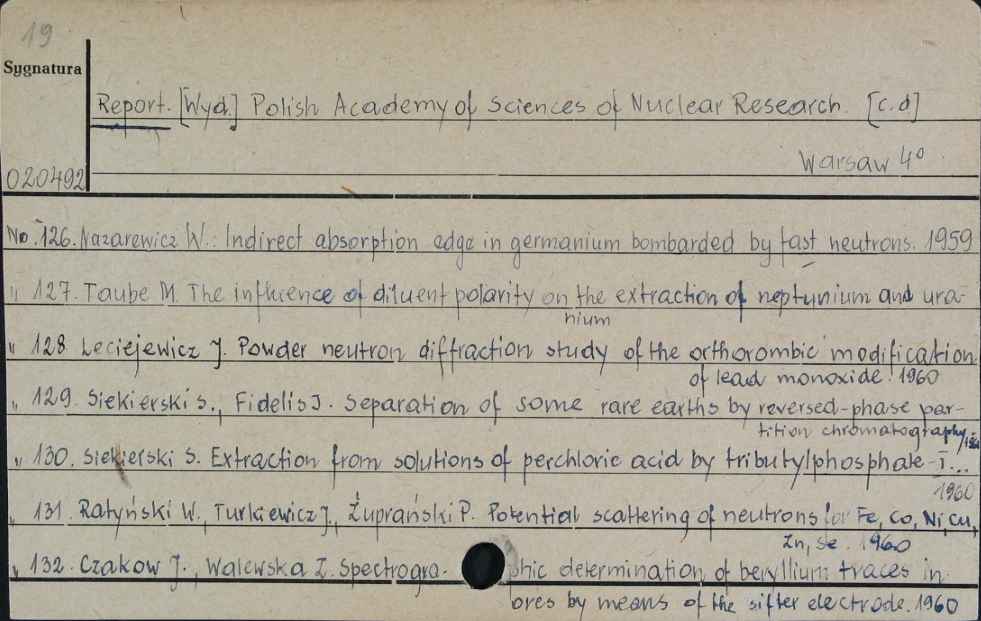 19
Sygnatura
Report. [Wyd.] Polish Academy of Sciences of Nuclear Research. [c.d]
Warsaw 4°
020492
No. 126. Nazarewicz W.: Indirect absorption edge in germanium bombarded by fast neutrons. 1959
" 127. Taube M. The influence of diluent polarity on the extraction of neptunium and ura-
nium
" 128. Leciejewicz J. Powder neutron diffraction study of the orthorombic modification
of lead monoxide. 1960
" 129. Siekierski S., Fidelis J. Separation of some rare earths by reversed-phase par-
tition chromatography,
" 130. Siekierski S. Extraction from solutions of perchloric acid by tributylphosphate-I...
1960
" 131. Ratyński W., Turkiewicz J., Żuprański P. Potential scattering of neutrons for Fe, Co, Ni, Cu,
Zn, Se. 1960
" 132. Czakow J., Walewska Z. Spectrogra- phic determination of beryllium traces in
ores by means of the sifter electrode. 1960